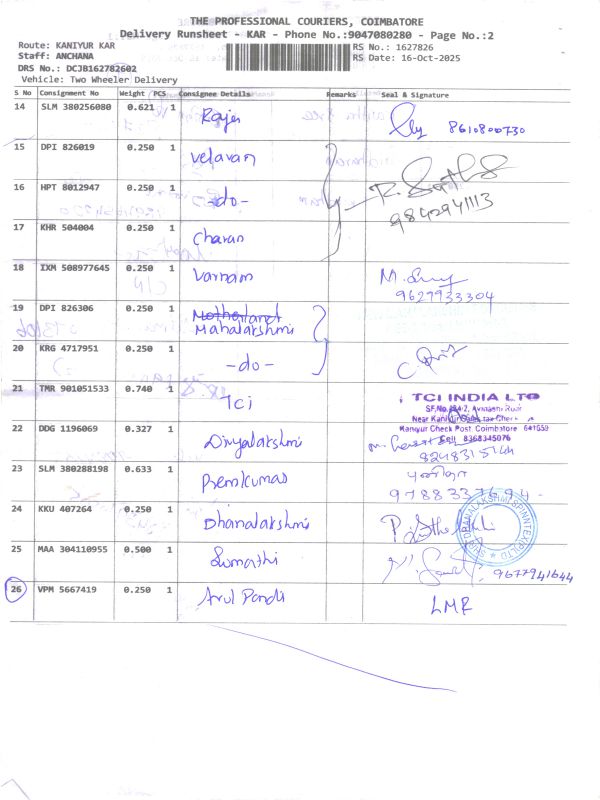 THE PROFESSIONAL COURIERS, COIMBATORE
Delivery Runsheet - KAR - Phone No.:9047080280 - Page No.:2
Route: KANIYUR KAR
RS No.: 1627826
Staff: ANCHANA
RS Date: 16-Oct-2025
DRS No.: DCJB162782602
Vehicle: Two Wheeler Delivery
S No Consignment No Weight PCS Consignee Details Remarks Seal & Signature
14 SLM 380256080 0.621 1 Rajes 8610800730
15 DPI 826019 0.250 1 Velavan
16 HPT 8012947 0.250 1 -do- 9842941113
17 KHR 504004 0.250 1 Charan
18 IXM 508977645 0.250 1 Varnam
9629933304
19 DPI 826306 0.250 1
Mahalakshmi
20 KRG 4717951 0.250 1 -do-
21 TMR 901051533 0.740 1 TCI
TCI INDIA LTD
Maniyur Check Post. Coimbatore
Cell 8368345076
22 DDG 1196069 0.327 1 Divyalakshmi
23 SLM 380288198 0.633 1 Premkumar
24 KKU 407264 0.250 1 Dhanalakshmi
25 MAA 304110955 0.500 1 Sumathi 9677941644
26 VPM 5667419 0.250 1 Arul Pandi LMR